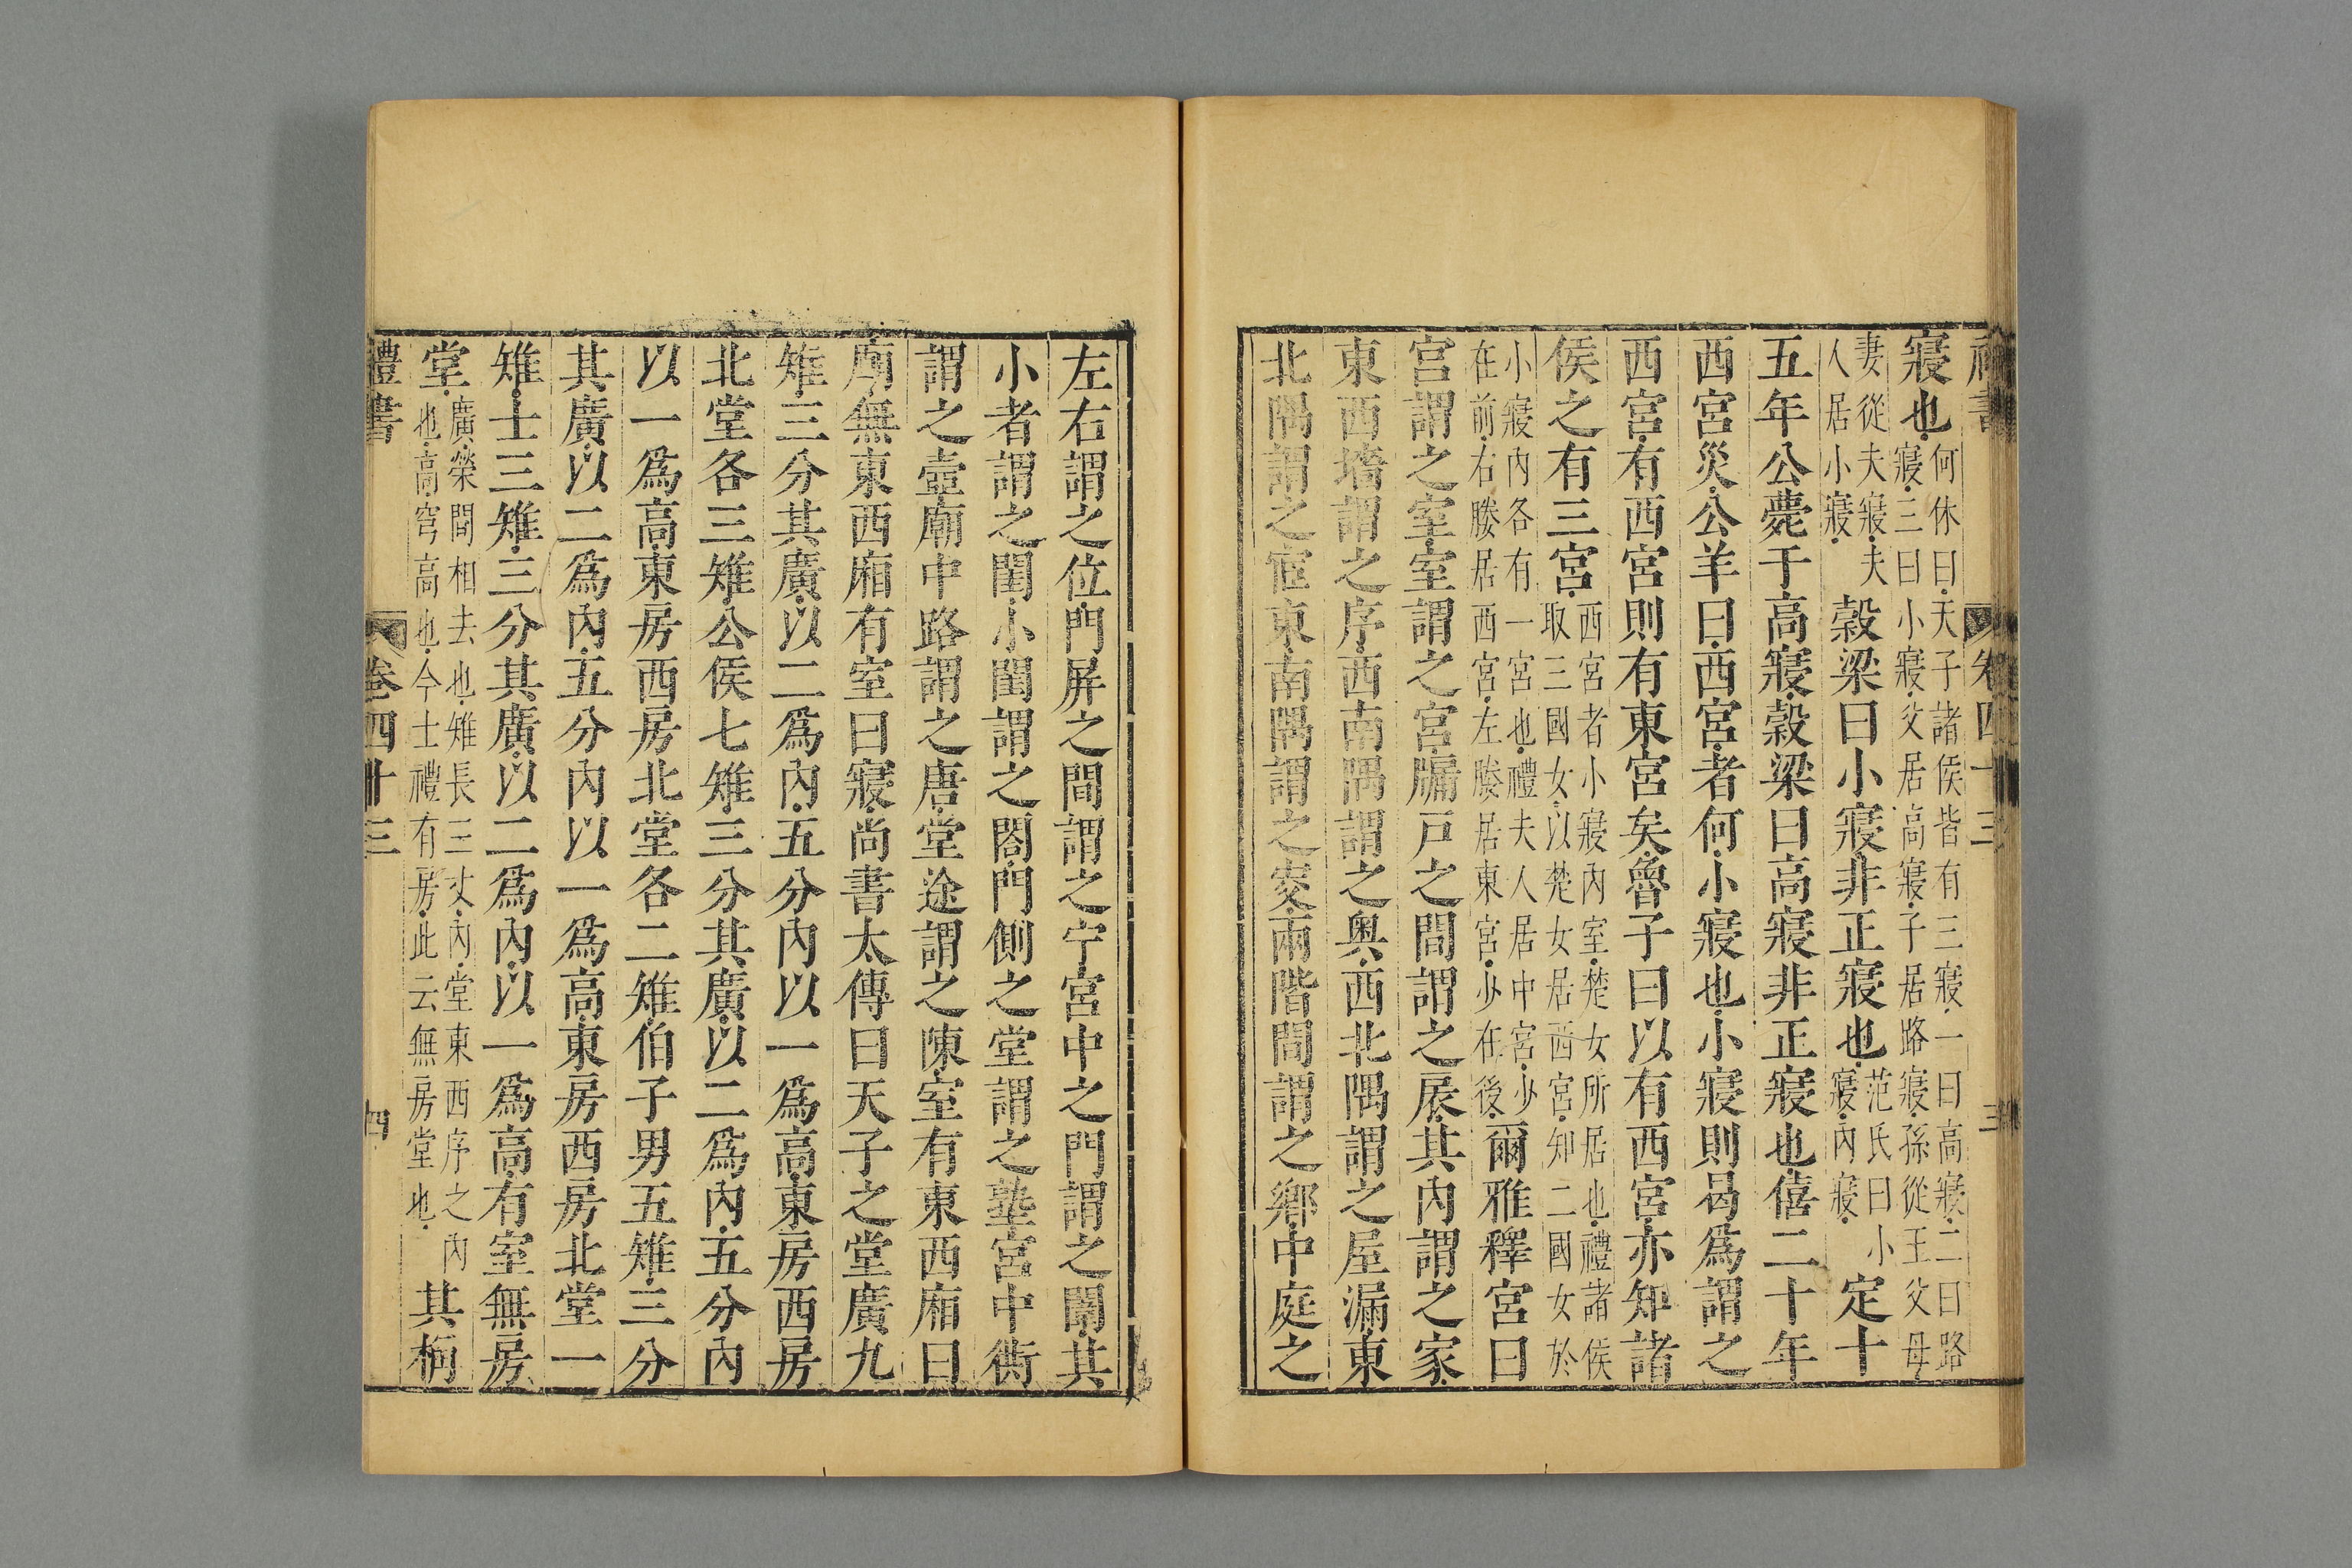 禮書 卷四十三 三
寢也何休曰天子諸侯皆有三寢一曰高寢二曰路
寢三曰小寢父居高寢子居路寢孫從王父母
妻從夫寢夫
人居小寢穀梁曰小寢非正寢也范氏曰小
寢內寢定十
五年公薨于高寢穀梁曰高寢非正寢也僖二十年
西宮災公羊曰西宮者何小寢也小寢則曷爲謂之
西宮有西宮則有東宮矣魯子曰以有西宮亦知諸
侯之有三宮西宮者小寢內室楚女所居也禮諸侯
取三國女以楚女居西宮知二國女於
小寢內各有一宮也禮夫人居中宮少
在前右媵居西宮左媵居東宮少在後爾雅釋宮曰
宮謂之室室謂之宮牖戶之間謂之扆其內謂之家
東西墻謂之序西南隅謂之奧西北隅謂之屋漏東
北隅謂之宧東南隅謂之窔兩階間謂之鄉中庭之
左右謂之位門屏之間謂之宁宮中之門謂之闈其
小者謂之閨小閨謂之閤門側之堂謂之塾宮中衖
謂之壼廟中路謂之唐堂途謂之陳室有東西廂曰
廟無東西廂有室曰寢尚書太傳曰天子之堂廣九
雉三分其廣以二爲內五分內以一爲高東房西房
北堂各三雉公侯七雉三分其廣以二爲內五分內
以一爲高東房西房北堂各二雉伯子男五雉三分
其廣以二爲內五分內以一爲高東房西房北堂一
雉士三雉三分其廣以二爲內以一爲高有室無房
堂廣榮間相去也雉長三丈內堂東西序之內
也高穹高也今士禮有房此云無房堂也其桷
禮書 卷四十三 四